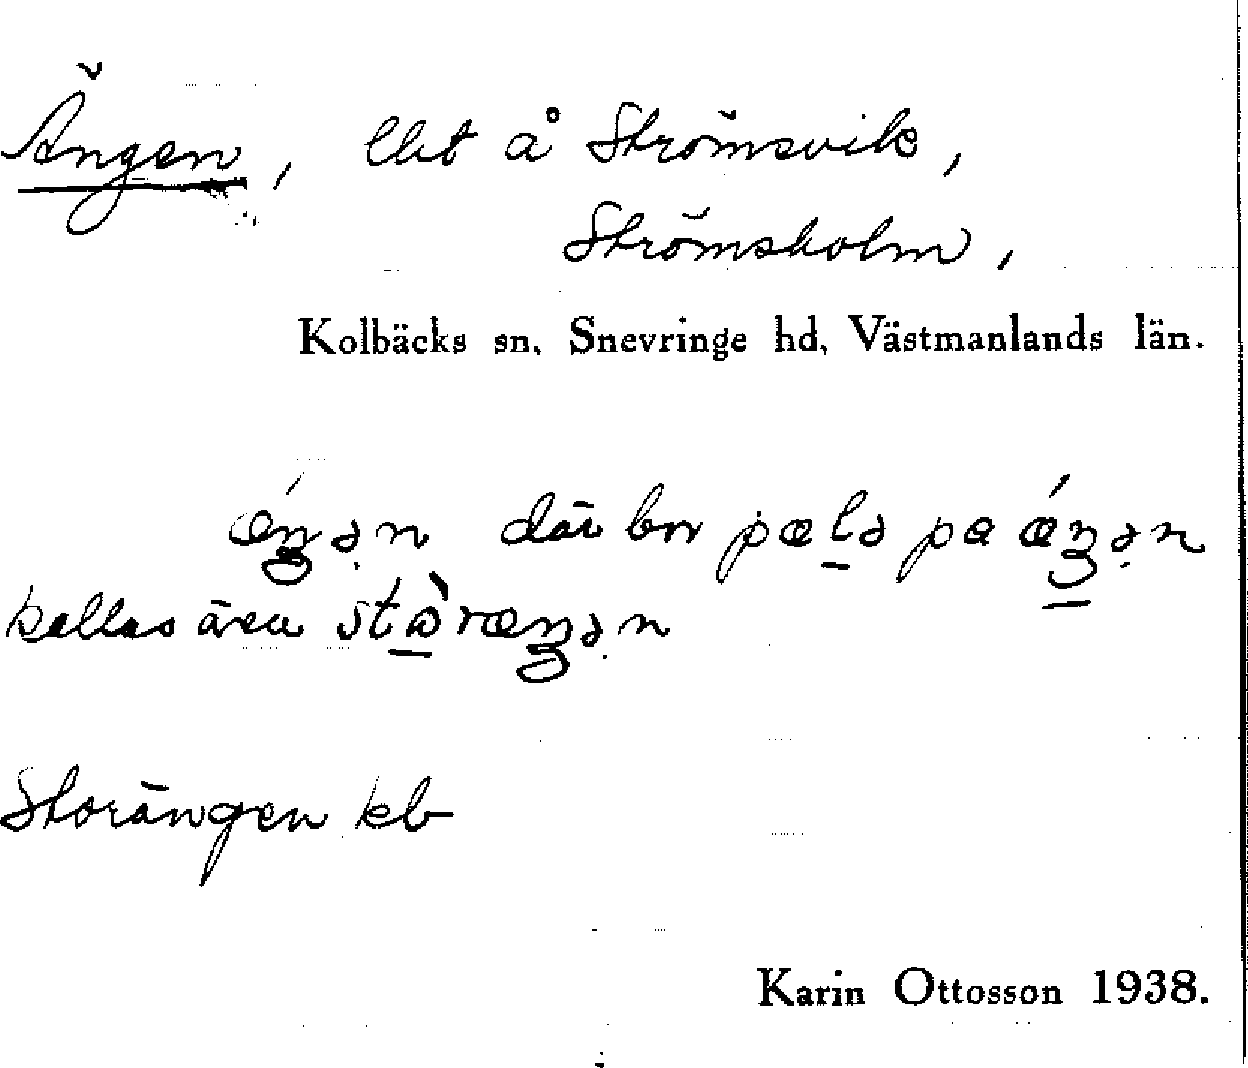 Ängen, lht å Strömsvik,
Strömsholm,
Kolbäcks sn, Snevringe hd, Västmanlands län.
ǽŋən där bor pælə pa ǽŋən
kallas även stòræŋən
Storängen kb
Karin Ottosson 1938.